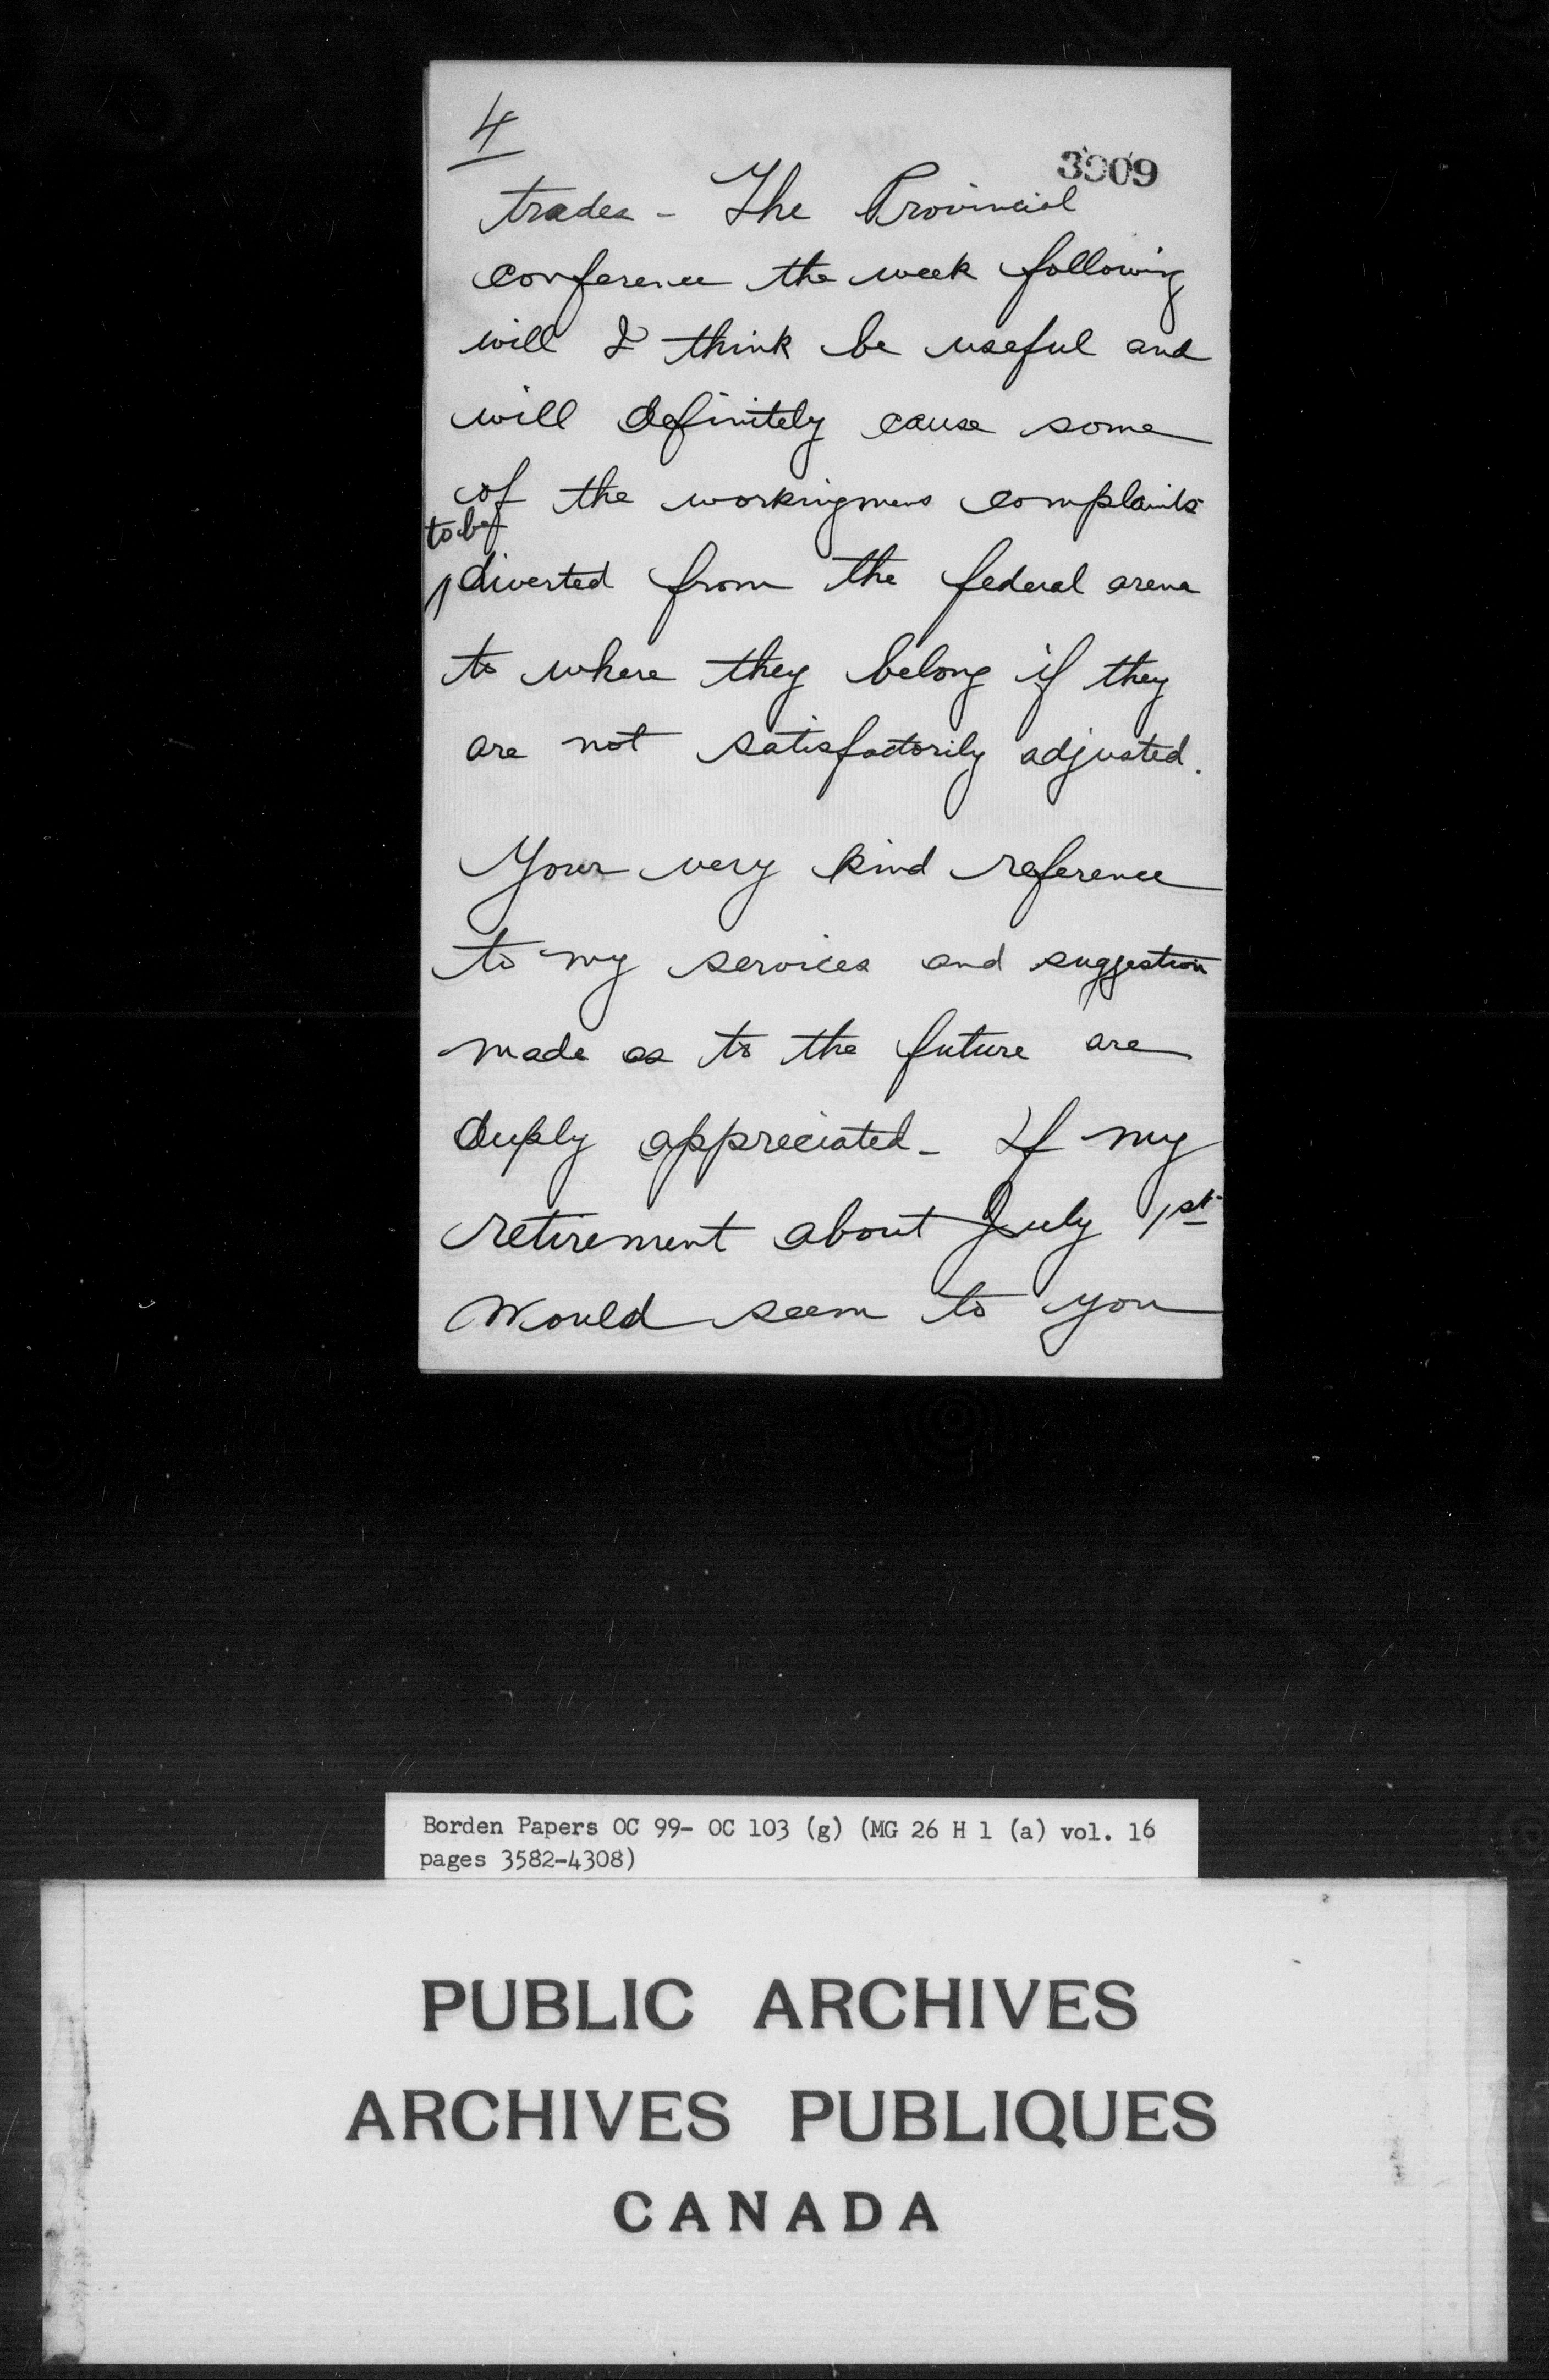 4
3909
trades - The Provincial
conference the week following
will I think be useful and
will definitely cause some
of the workingmens complaints
to be
diverted from the federal arena
to where they belong if they
are not satisfactorily adjusted.
Your very kind reference
to my services and suggestion
made as to the future are
deeply appreciated - If my
retirement about July 1st
would seem to you
Borden Papers OC 99- OC 103 (g) (MG 26 H 1 (a) vol. 16
pages 3582-4308)
PUBLIC ARCHIVES
ARCHIVES PUBLIQUES
CANADA